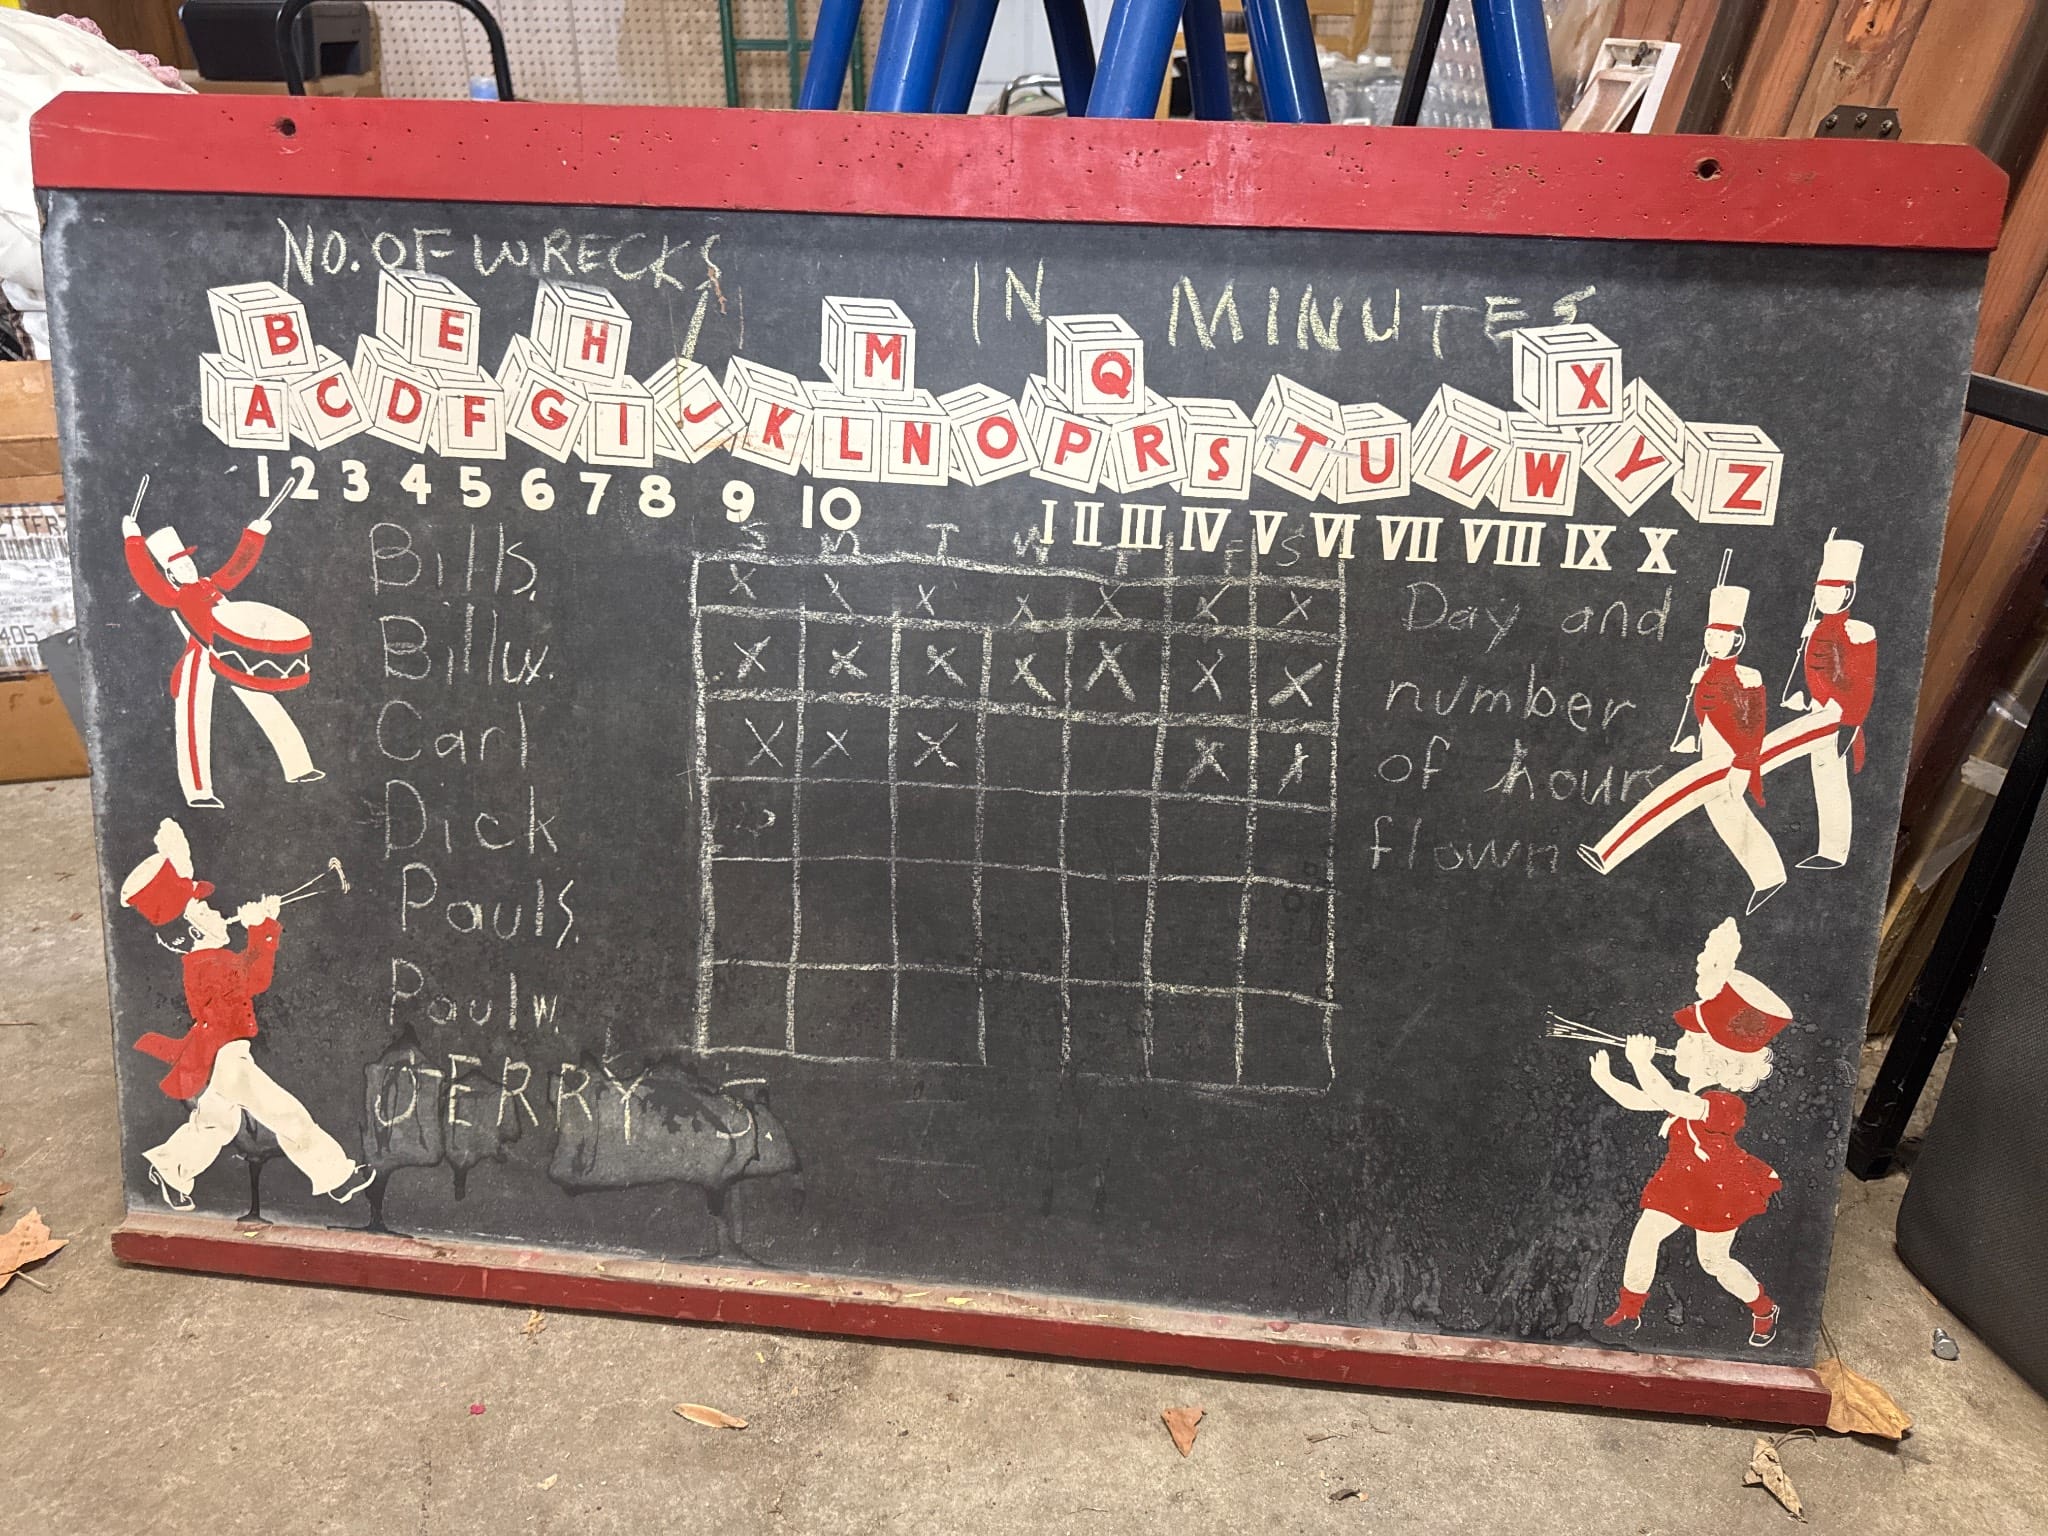 NO. OF WRECKS
IN MINUTES
B E H M Q X
A C D F G I J K L N O P R S T U V W Y Z
1 2 3 4 5 6 7 8 9 10
I II III IV V VI VII VIII IX X
S M T W T F S
Bill s.
X X X X X X X
Bill w.
X X X X X X X
Carl
X X X X X
Dick
Paul s.
Paul w.
JERRY S.
Day and
number
of hours
flown